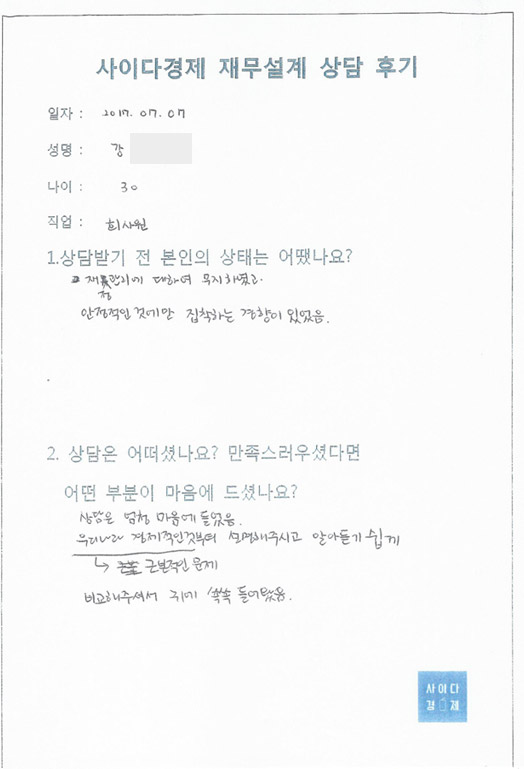 사이다경제 재무설계 상담 후기
일자 : 2017. 07. 07
성명 : 강
나이 : 30
직업 : 회사원
1.상담받기 전 본인의 상태는 어땠나요?
재정관리에 대하여 무지하였고.
안정적인 것에만 집착하는 경향이 있었음.
2. 상담은 어떠셨나요? 만족스러우셨다면
어떤 부분이 마음에 드셨나요?
상담은 엄청 마음에 들었음.
우리나라 경제적인것부터 설명해주시고 알아듣기 쉽게
↳ 근본적인 문제
비교해주셔서 귀에 쏙쏙 들어왔음.
사이다
경제